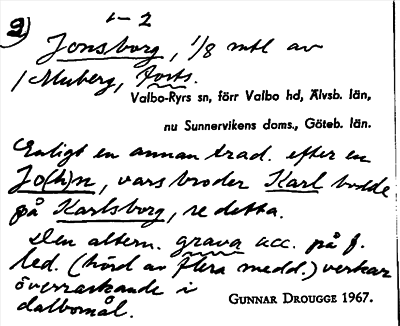 2) 1-2
Jonsborg, 1/8 mtl av
1 Muberg, forts.
Valbo-Ryrs sn, förr Valbo hd, Älvsb. län,
nu Sunnervikens doms., Göteb. län.
Enligt en annan trad. efter en
Jo(h)n, vars broder Karl bodde
på Karlsborg, se detta.
Den altern. grava acc. på f.
led. (hörd av flera medd.) verkar
överraskande i
dalbomål.
GUNNAR DROUGGE 1967.